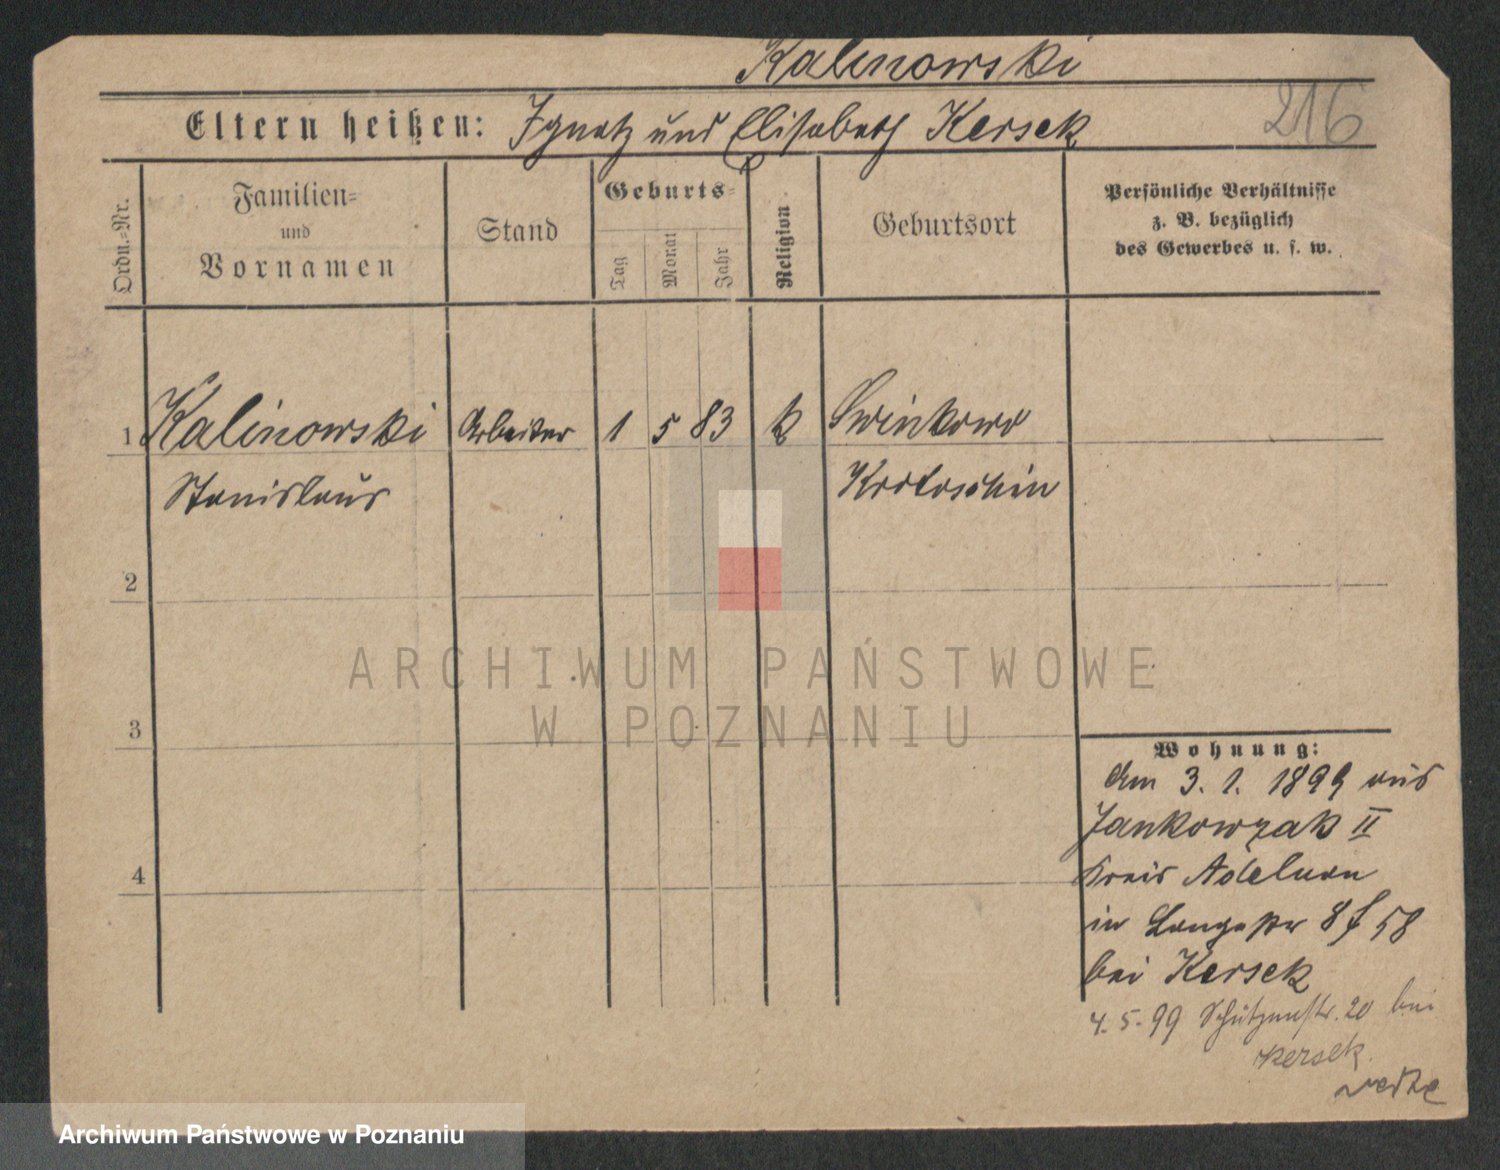 Kalinowski
216
Eltern heißen: Ignatz und Elisabeth Kersek
Ordn.-Nr.
Familien-
und
Vornamen
Stand
Geburts-
Tag
Monat
Jahr
Religion
Geburtsort
Persönliche Verhältnisse
z. B. bezüglich
des Gewerbes u. s. w.
1 Kalinowski Arbeiter 1 5 83 k Swinkowo
Stanislaus Krotoschin
2
3
4
Wohnung:
Am 3. 1. 1899 aus
Jankowzak II
Kreis Adelnau
in Langestr 8 f 58
bei Kersek
4. 5. 99 Schützenstr. 20 bei
Kersek
ARCHIWUM PAŃSTWOWE
W POZNANIU
Archiwum Państwowe w Poznaniu